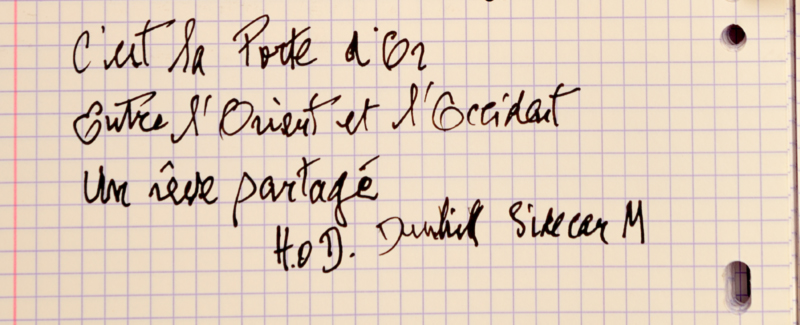 C'est la Porte d'Or
Entre l'Orient et l'Occident
Un rêve partagé
H.o D. Dunhill Sidecar M